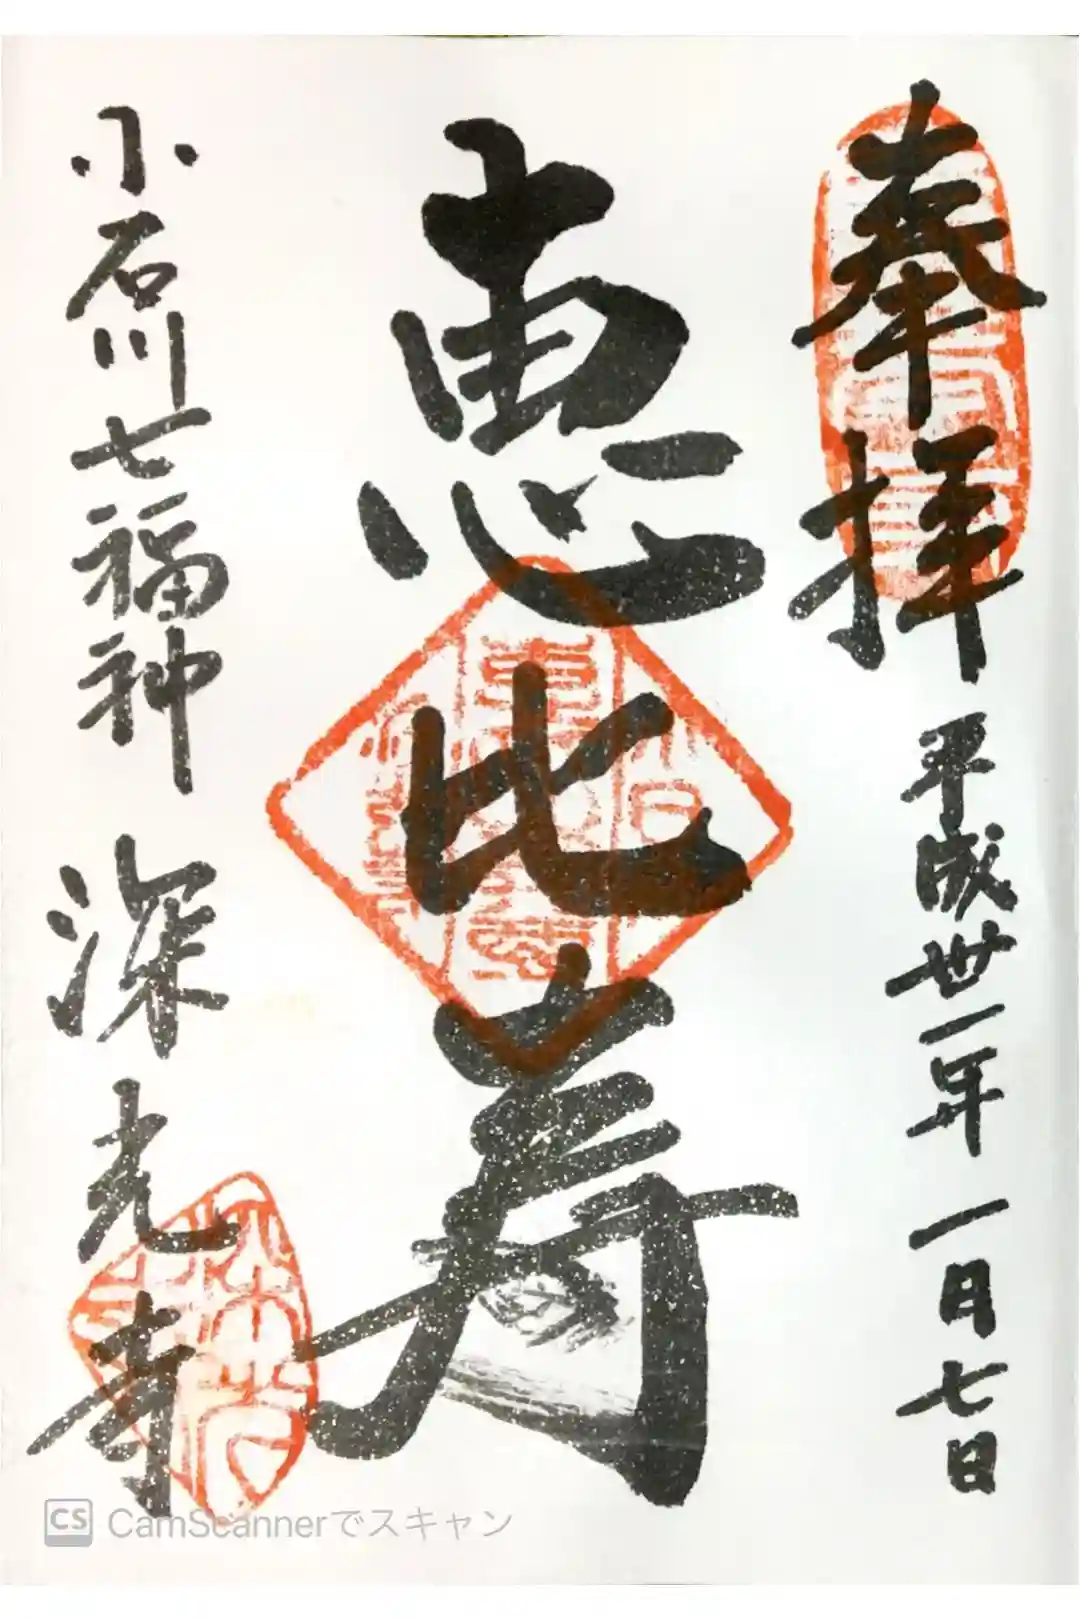 奉拝 平成丗一年 一月七日
恵比寿
小石川七福神 深光寺
CS CamScannerでスキャン